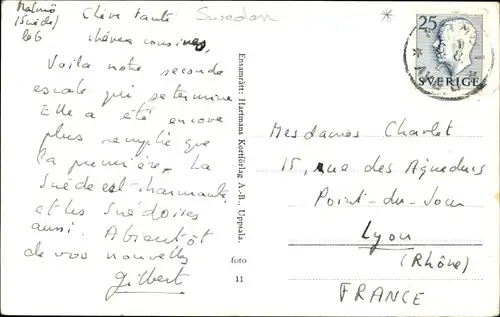 Malmö
(Suède)
le 6
Chère tante Sweden
chères cousines,
Voilà notre seconde
escale qui se termine
Elle a été encore
plus remplie que
la première. La
Suède est charmante
et les Suédoises
aussi. A bientôt
de vos nouvelles
Gilbert
Ensamrätt: Hartmans Kortförlag A.-B., Uppsala.
foto
11
25
SVERIGE
Mesdames Charlet
15, rue des Aqueducs
Point-du-Jour
Lyon
(Rhône)
FRANCE